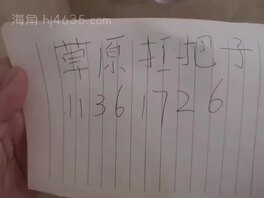 海角 hj4635.com
草原扛把子
11361726